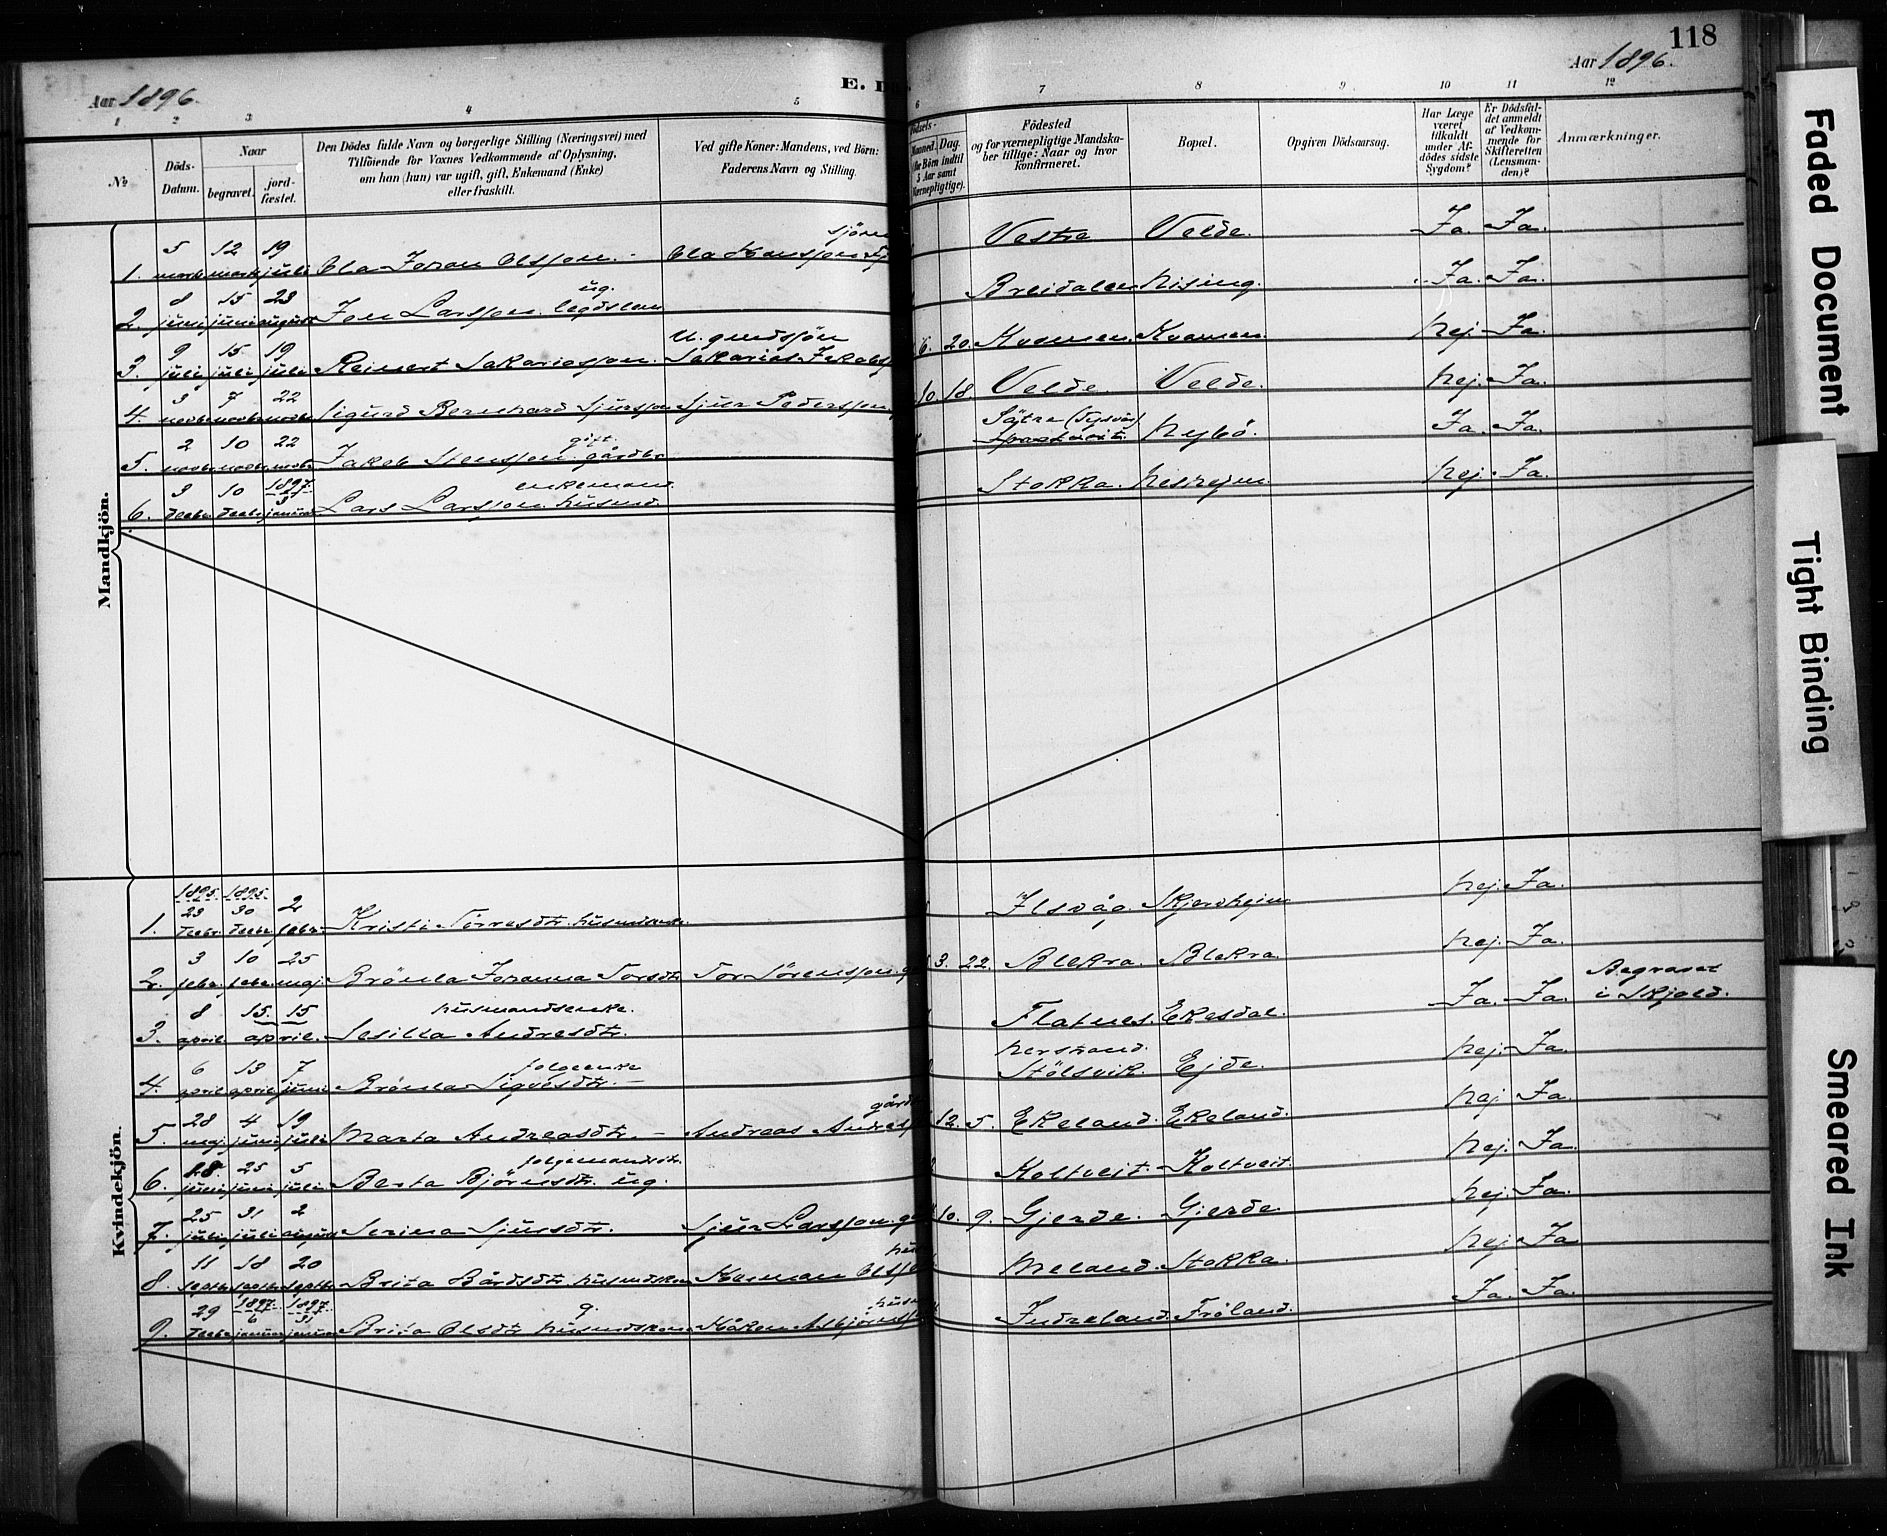 118
Aar 1896.
Aar 1896.
E.
1 2 3 4 5 6 7 8 9 10 11 12
№
Döds-Datum.
Naar
begravet.
jord-fæstet.
Den Dödes fulde Navn og borgerlige Stilling (Næringsvei) med
Tilföiende for Voxnes Vedkommende af Oplysning,
om han (hun) var ugift, gift, Enkemand (Enke)
eller fraskilt.
Ved gifte Koner: Mandens, ved Börn:
Faderens Navn og Stilling.
Födested
og for værnepligtige Mandska-
ber tillige: Naar og hvor
konfirmeret.
Bopæl.
Opgiven Dödsaarsag.
Har Læge
været
tilkaldt
under Af-
dödes sidste
Sygdom?
Er Dödsfal-
det anmeldt
af Vedkom-
mende for
Skifteretten
(Lensman-
den)?
Anmærkninger.
Mandkjön.
1. 5 marts 12 marts 19 juli Ola Johan Olsson. Ola Hansson Vestre Velde. Ja. Ja.
2. 8 juni 15 juni 23 august Jon Larsson ug. legdslem Breidalen Nising. Ja. Ja.
3. 9 juli 15 juli 19 juli Reinert Sakariasson. U. gmdssön Sakarias Jakobs 6. 20. Kvamen. Kvamen. Nej. Ja.
4. 3 novbr 7 novbr 22 novbr Sigurd Bernhard Sjursson Sjur Pedersson 10. 18. Velde. Velde. Nej. Ja.
5. 2 novbr 10 novbr 22 novbr Jakob Stensson gift. gårdbr. Sätre (Tysvär) Nybö. Ja. Ja.
6. 3 decbr 10 decbr 1897 3 januar Lars Larsson enkemand husmd. Stokka. Nesheim. Nej. Ja.
Kvindekjön.
1. 1895. 23 decbr. 1895. 30 decbr 2 febr. Kristi Torresdtr. husmdsenke. Ilsvåg. Skjersheim Nej. Ja.
2. 3 febr. 10 febr. 25 maj. Brönla Johanna Torsdtr. Tor Sörensson. 3. 22. Blekra. Blekra. Nej. Ja.
3. 8 april 15. 15 april. Sesilia Andresdtr. husmandsenke. Flatnes. Ekesdal. Ja. Ja. Begravet
i Skjold.
4. 6 april 13 april 7 juni Brönla Sigvesdtr. folgeenke Nerstrand. Stölsvik. Ejde. Nej. Ja.
5. 28 maj. 4 juni 19 juli Marta Andreasdtr. Andreas Andres 12. 5. Ekeland. Ekeland. Nej Ja.
6. 18 juni 25 juni 5 juli Berta Björnsdtr. ug. folgemandsdtr. Koltveit. Koltveit. Nej. Ja.
7. 25 juli 31 juli 2 august Serina Sjursdtr. Sjur Larsson. 10. 9. Gjerde. Gjerde. Nej. Ja.
8. 11 septbr 18 septbr 20 septbr Brita Bårdsdtr. husmdskone Herman Olsson Meland. Stokka. Nej. Ja
9. 29 decbr 1897. 6 januar 1897. 31 januar Brita Olsdtr. g. husmdskone Håken Asbjörnsson Indreland. Fröland. Ja. Ja.
Faded Document
Tight Binding
Smeared Ink